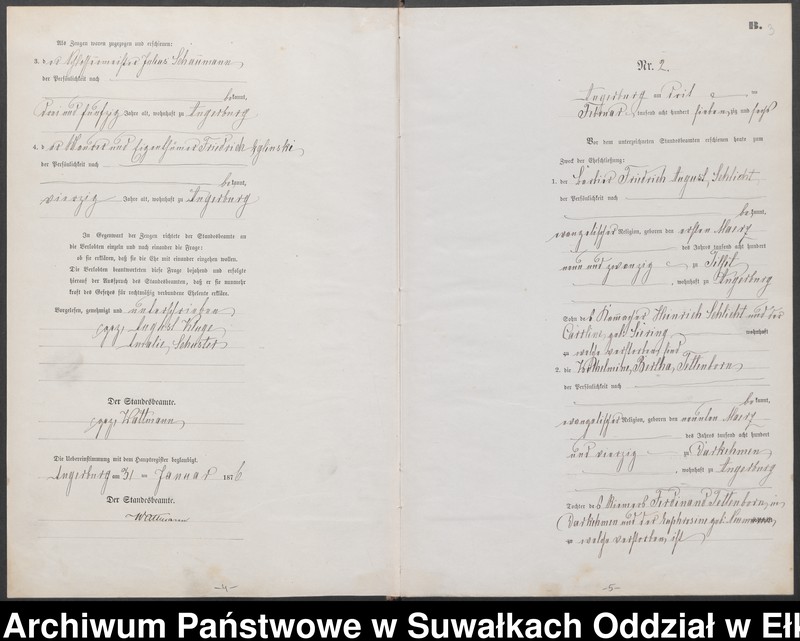 Als Zeugen waren zugezogen und erschienen:
3. der Schlossermeister Julius Schaumann,
der Persönlichkeit nach
bekannt,
drei und fünfzig Jahre alt, wohnhaft zu Angerburg
4. der Maurer und Eigenthümer Friedrich
der Persönlichkeit nach
bekannt,
vierzig Jahre alt, wohnhaft zu Angerburg
In Gegenwart der Zeugen richtete der Standesbeamte an
die Verlobten einzeln und nach einander die Frage:
ob sie erklären, daß sie die Ehe mit einander eingehen wollen.
Die Verlobten beantworteten diese Frage bejahend und erfolgte
hierauf der Ausspruch des Standesbeamten, daß er sie nunmehr
kraft des Gesetzes für rechtmäßig verbundene Eheleute erkläre.
Vorgelesen, genehmigt und unterschrieben
gez. August Kluge
Amalie Schuster
Der Standesbeamte.
gez. Wattmann
Die Uebereinstimmung mit dem Hauptregister beglaubigt.
Angerburg am 31 ten Januar 1876
Der Standesbeamte.
Wattmann
-4-
B. 3
Nr. 2.
Angerburg am drit ten
Februar tausend acht hundert siebenzig und sechs
Vor dem unterzeichneten Standesbeamten erschienen heute zum
Zweck der Eheschließung:
1. der Friedrich August Schlicht
der Persönlichkeit nach
bekannt,
evangelischer Religion, geboren den ersten März
des Jahres tausend acht hundert
neun und zwanzig zu Tilsit
, wohnhaft zu Angerburg
Sohn des Heinrich Schlicht und der
Caroline, geb. wohnhaft
welche verstorben sind
2. die Wilhelmine, Bertha, Tettenborn
der Persönlichkeit nach
bekannt,
evangelischer Religion, geboren den neunten März
des Jahres tausend acht hundert
und vierzig zu Darkehmen
, wohnhaft zu Angerburg
Tochter des Ferdinand Tettenborn, in
Darkehmen und der geb.
welche verstorben ist
-5-
Archiwum Państwowe w Suwałkach Oddział w Eł